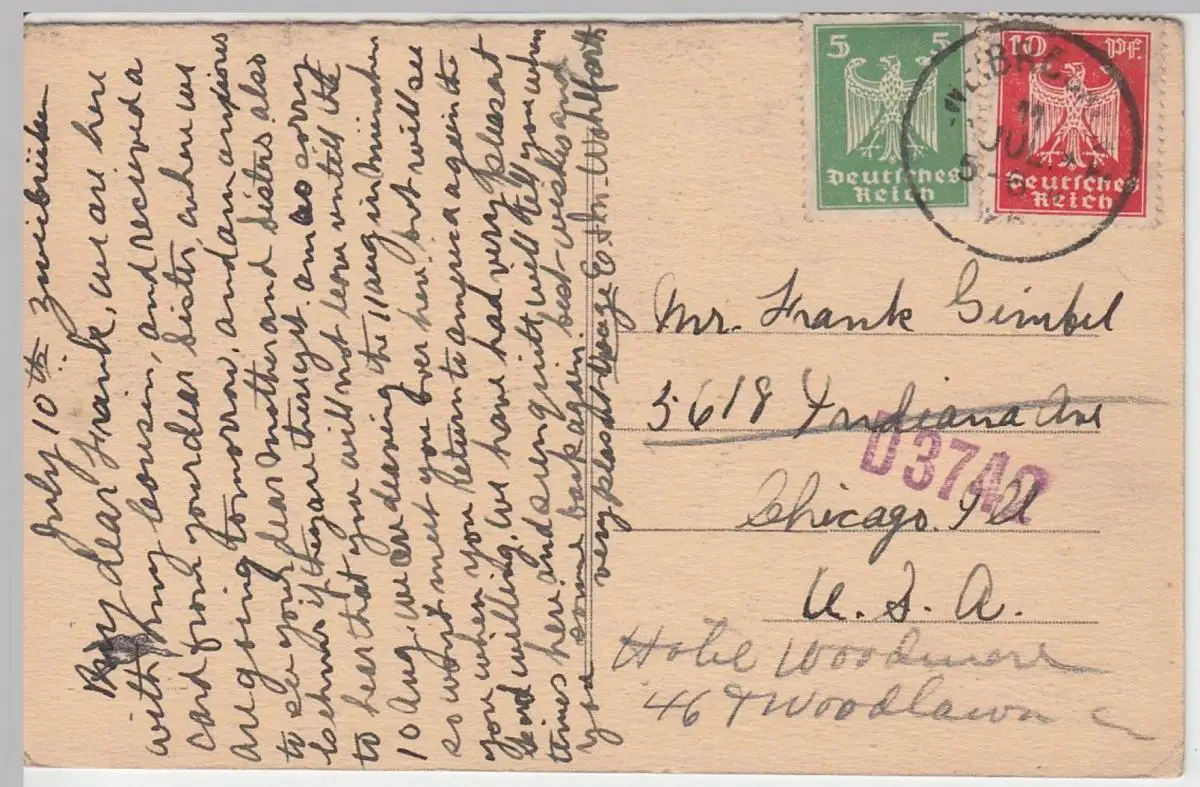 July 10th Zweibrücken
My dear Frank, we are here
with my cousin, and received a
card from your dear sister, when we
are going tomorrow, and am anxious
to see your dear Mother and Sisters also
if they are there yet. am so sorry
to hear that you will not leave untill the
10 Aug. we are leaving the 11 aug in München
so wont meet you over here. but will see
you when you Return to america again the
Lord willing. we have had very pleasant
times here and seen quite will tell you when
you come back again. best wishes and
very pleasant Voyage E + M. Wohlfarth
5 5
Deutsches
Reich
10 Pf.
Deutsches
Reich
11
JUL
Mr. Frank Gimbel
5618 Indiana Ave
D3742
Chicago. Ill
U. S. A.
Hotel Woodmere
46 + Woodlawn